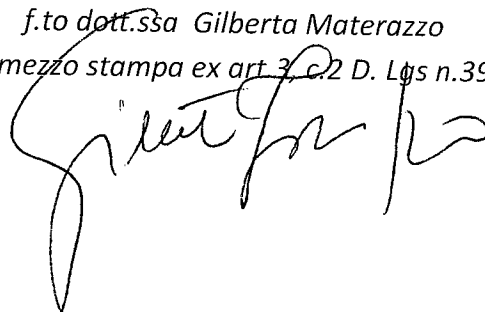 f.to dott.ssa Gilberta Materazzo
mezzo stampa ex art.3, c.2 D. Lgs n.39